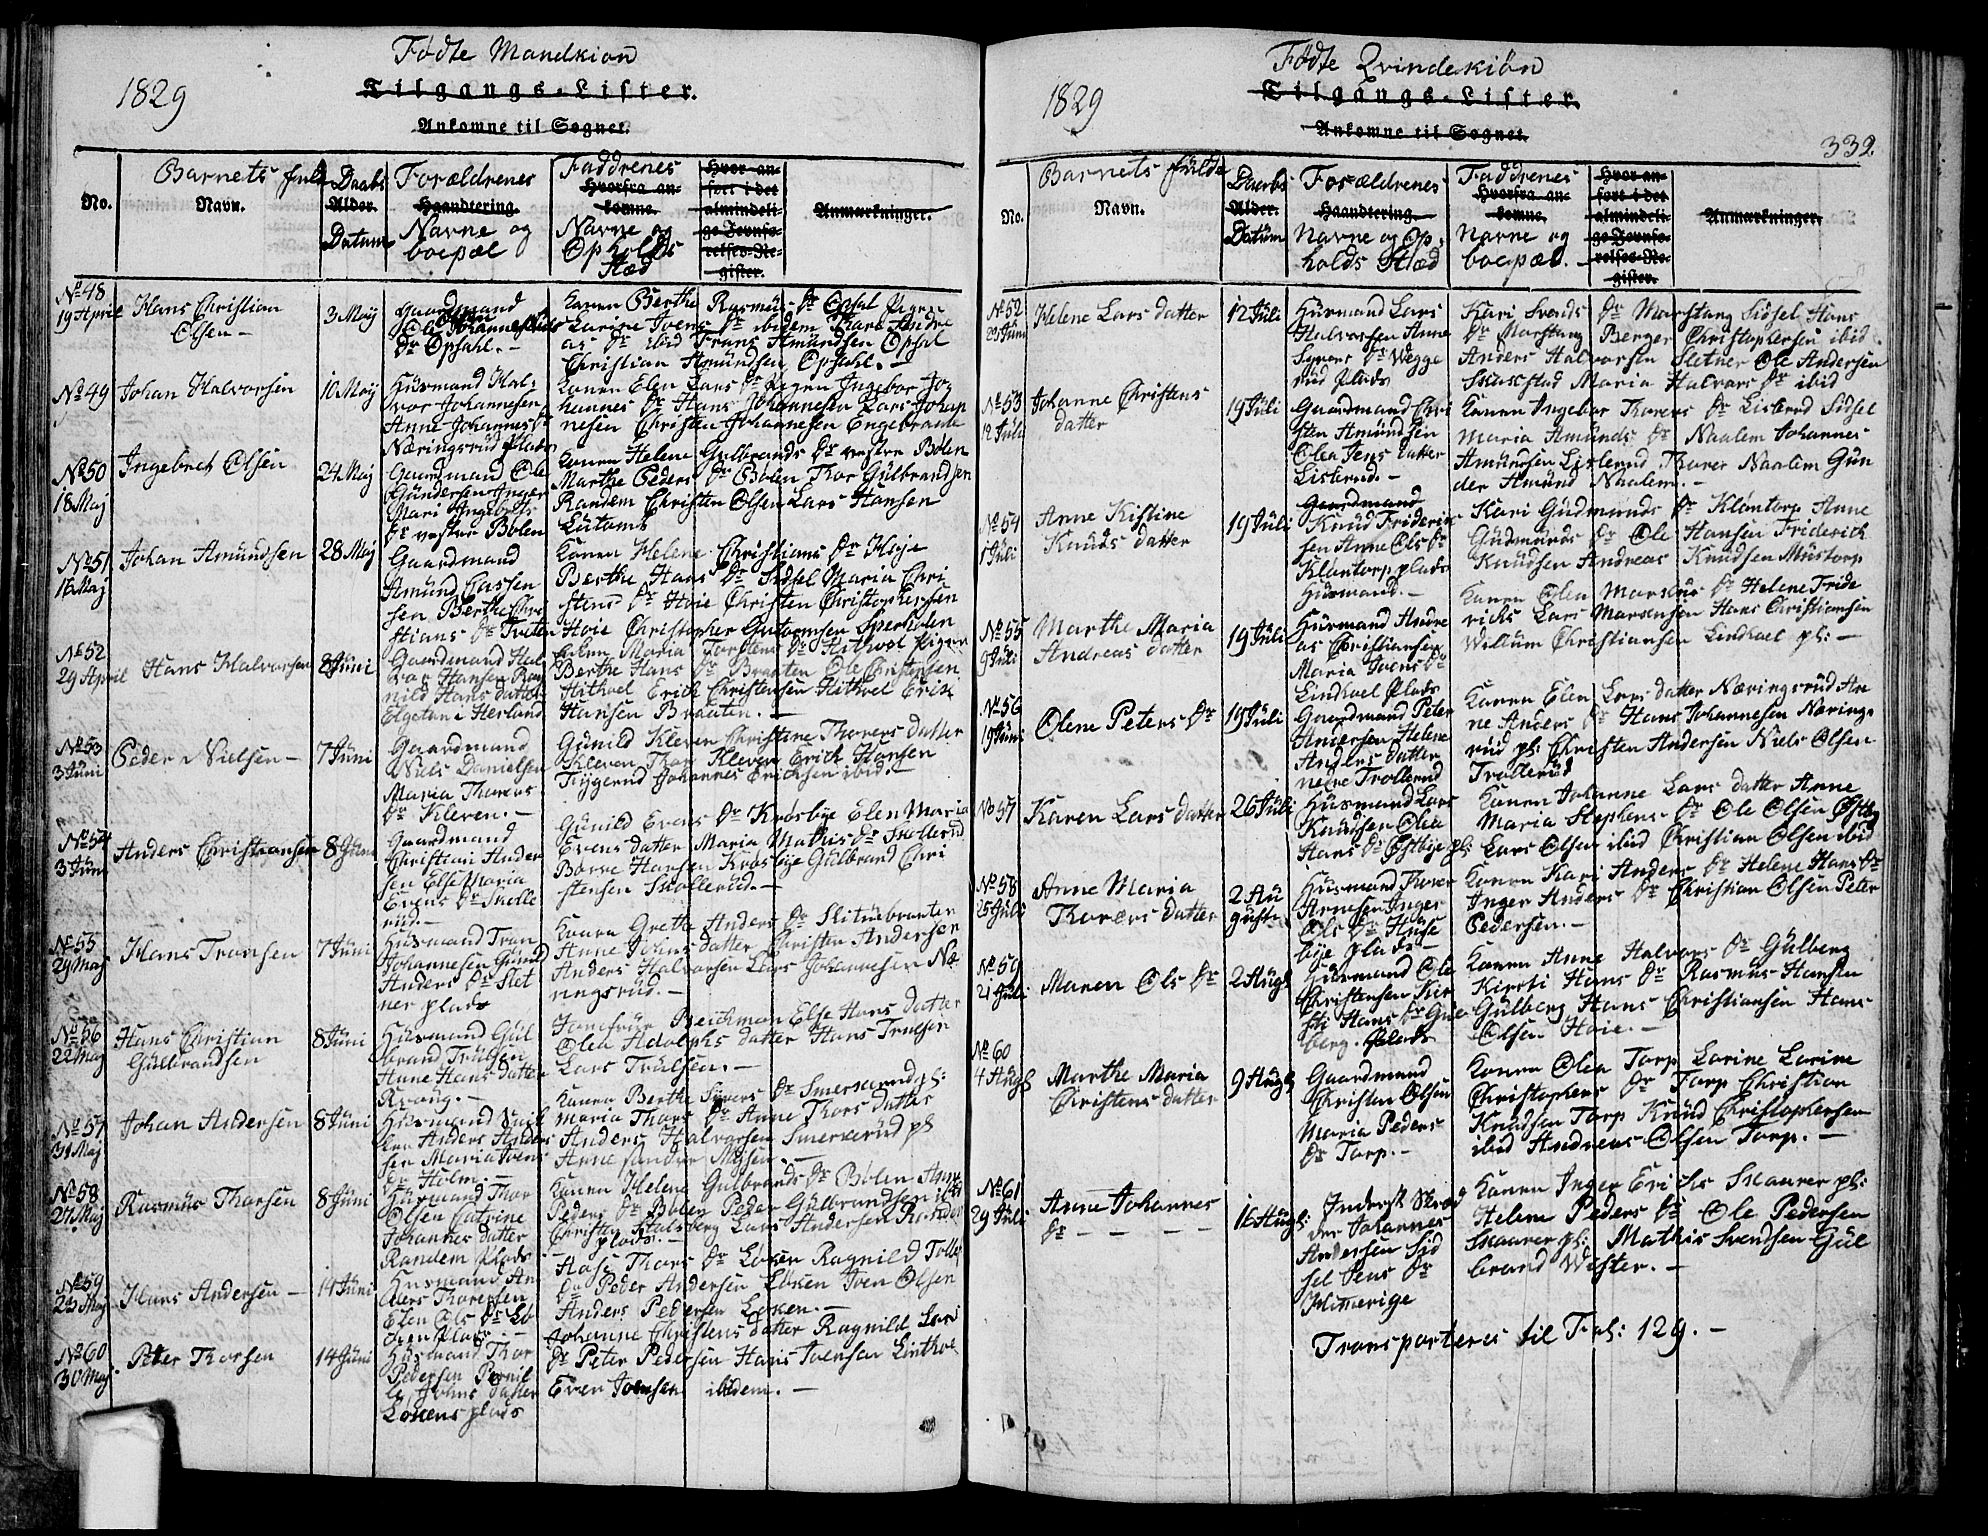 Fødte Mandkion
1829
Tilgangs-Lister.
Ankomne til Sognet.
No.
Barnets fulde
Navn.
Daabs
Alder.
Datum
Forældrenes
Haandtering.
Navne og
boepæl
Faddrenes
Hvorfra an-
komne.
Navne og
Opholds
Stæd
Hvor an-
ført i det
almindeli-
ge Jevnfø-
relses-Re-
gister.
Anmærkninger.
No 48
19 April
Hans Christian
Olsen
3 Maj
Gaardmand
Ole Johannes
Dr Opsahl.
Konen Berthe Rasmus Dr Opsal Pigen
Karine Ivens Dr ibidem Thore Andre
as Dr ibid Frans Amundsen Opsal
Christian Amundsen Opsahl.
No 49
Johan Halvorsen
10 Maj
Husmand Hal-
vor Johannesen
Anne Johannes Dr
Næringsrud Plads
Konen Elen Lars Dr Pigen Ingebor Jo
hannes Dr Hans Johannesen Lars Johan
nesen Christen Johannesen Engebraate
No 50
18 Maj
Ingebret Olsen
24 Maj
Gaardmand Ole
Gundersen Inger
Mari Ingebrets
Dr vestre Bølen
Konen Helene Gulbrands Dr vestre Bølen
Marthe Peders Dr Bølen Thor Gulbrandsen
Randem Christen Olsen Lars Hansen
No 51
16 Maj
Johan Amundsen
28 Maj
Gaardmand
Amund Lassen
sen Berthe Chri
stians Dr Tveten
Konen Helene Christians Dr Hoje
Berthe Hans Dr Sidsel Maria Chri
stens Dr Hoie Christen Christophersen
Hoie Christopher Guttormsen Sperholen
No 52
29 April
Hans Halvorsen
8 Juni
Gaardmand Hal
vor Hansen Rag
nild Hans datter
Elgetun i Herland
Maria Torstens Dr Hithvel Pigen
Berthe Hans Dr Braaten Ole Christensen
Hithoel Erich Christensen Hithvel Erik
Hansen Braaten.
No 53
3 Juni
Peder Nielsen
7 Juni
Gaardmand
Niels Danielsen
Maria Thores
Dr Kleven.
Gunild Kleven Christine Thorers datter
Kleven Thor Kleven Erich Hansen
Johannes Erichsen ibid.
No 54
3 Juni
Anders Christiansen
8 Juni
Gaardmand
Christian Ander
sen Else Maria
Evens Dr Skolle
rud.
Gunild Evens Dr Krosbye Elen Maria
Evensdatter Maria Mathis Dr Skollerud
Børre Hansen Krosbye Gulbrand Chri
stensen Skollerud.
No 55
29 Maj
Hans Transen
7 Juni
Husmand Tran
Johannesen Gunild
Anders Dr Slet
ner plads
Konen Grethe Anders Dr
Anne Johns datter Christen Andersen
Anders Halvorsen Lars Johannesen Næ
ringsrud.
No 56
22 Maj
Hans Christian
Gulbrandsen
8 Juni
Husmand Gul
brand Trulsen
Anne Hans datter
Krong.
Jomfrue Beichman Else Hans datter
Olea Adolphs datter Hans Trulsen
Lars Trulsen.
No 57
31 Maj
Johan Andersen
8 Juni
Husmand
Anders Anders
sen Maria Ivens
Dr Holm.
Konen Berthe Sivers Dr Smerkerud pl:
Maria Thors Dr Anne Thors datter
Anders Halvorsen Smerkerud pl
No 58
27 Maj
Rasmus Thorsen
8 Juni
Husmand Thor
Olsen Catrine
Johannes datter
Randem Plads
Konen Helene Gulbrands Dr Bølen Anne
Peders Dr Bølen Peder Gulbrandsen ibid
Christen Stalsberg Lars Andersen Rander
plads.
No 59
23 Maj
Hans Andersen
14 Juni
Husmand An
ders Thoresen
Elen Ols Dr Lo
ken Plads.
Aase Thors Dr Løken Ragnild Tolle
Dr Peder Andersen Løken Iven Olsen
Anders Pedersen Løken.
No 60
30 Maj
Peter Thorsen
14 Juni
Husmand Thor
Pedersen Pernil
le Johns datter
Lokens plads
Johanne Christens datter Ragnild Lars
Dr Peter Pedersen Hans Ivensen Linthoe
Even Ivensen ibidem.
Fødte Qvindekiøn
1829
332
Tilgangs-Lister.
Ankomne til Sognet.
No.
Barnets fulde
Navn.
Daabs
Alder.
Datum
Forældrenes
Haandtering.
Navne og Op-
holds Stæd
Faddrenes
Hvorfra an-
komne.
Navne og
boepæl.
Hvor an-
ført i det
almindeli-
ge Jevnfø-
relses-Re-
gister.
Anmærkninger.
No 52
Helene Lars datter
12 Juli
Husmand Lars
Halvorsen Anne
Syvers Dr Wegge
rud Plads
Kari Svends Dr Marstang Sidsel Hans
Dr Marstang Berger Christophersen ibid.
Anders Halvorsen Sletner Ole Andersen
Skaastad Maria Halvors Dr ibid
No 53
12 Juli
Johanne Christens
datter
19 Juli
Gaardmand Chri
sten Amundsen
Olea Jens datter
Listerud.
Konen Ingebor Thorers Dr Listerud Sidsel
Maria Amunds Dr Naalem Johannes
Amundsen Listerud Thorer Naalem Gun
der Amund Naalem.
No 54
1 Juli
Anne Kistine
Knuds datter
19 Juli
Gaardmand
Knud Friderik
sen Anne Ols Dr
Klontorp plads
Husmand.
Kari Gudmunds Dr Klontorp Anne
Gudmunds Dr Ole Hansen Friderich
Knudsen Andreas Knudsen Mustorp
No 55
9 Juli
Marthe Maria
Andreas datter
19 Juli
Husmand Andre
as Christiansen
Maria Ivens Dr
Lindhoel Plads
Konen Olea Markus Dr Helene Fride
richs Lars Markusen Hans Christiansen
Willum Christiansen Lindhoel pl:
No 56
19 Juni
Olene Peters Dr
19 Juli
Gaardmand Peter
Andersen Helene
Anders datter
nedre Trollerud
Konen Elen Lars datter Næringsrud An
ne Anders Dr Hans Johannesen Nærings
rud pl: Christen Andersen Niels Olsen
Trollerud
No 57
Karen Lars datter
26 Juli
Husmand Lars
Knudsen Olea
Hans Dr Østbye pl:
Konen Johanne Lars datter Anne
Maria Stephens Dr Ole Olsen Østby
Lars Olsen ibid Christian Olsen ibid
No 58
25 Juli
Anne Maria
Thorers datter
2 Au
gust
Husmand Thorer
Arnesen Inger
Ols Dr Huse
bye Plads
Konen Kari Anders Dr Helene Hans Dr
Inger Anders Dr Christian Olsen Peter
Pedersen.
No 59
21 Juli
Maren Ols Dr
2 Augs
Husmand Ole
Christensen Kir
sti Hans Dr Gul
berg. Plads
Konen Anne Halvors Dr Gulberg
Kirsti Hans Dr Rasmus Hansen
Gulberg Hans Christiansen Hans
Olsen Hoie.
No 60
4 Augs
Marthe Maria
Christens datter
9 Augs
Gaardmand
Christen Olsen
Maria Peders
Dr Torp.
Konen Olea Torp Larine Larine
Christophers Dr Torp Christian
Knudsen Torp Knud Christophersen
ibid Andreas Olsen Torp.
No 61
29 Juli
Anne Johannes
Dr
16 Augs:
Inderst Skræd
der Johannes
Andersen Sid
sel Jens Dr
Himerige
Konen Inger Erichs Skaarer pl:
Helene Peders Dr Ole Pedersen
Skaarer pl: Mathis Svendsen Gul
brand Wister.
Transporteres til Fol: 129.